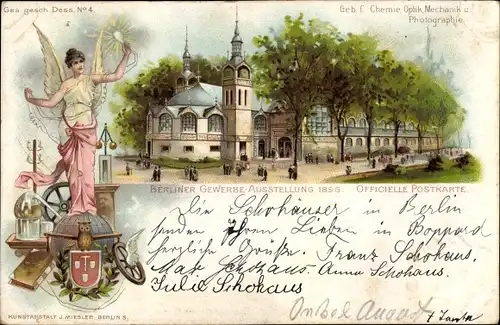 Ges. gesch. Dess. No 4.
Geb. f. Chemie, Optik, Mechanik u.
Photographie.
BERLINER GEWERBE-AUSSTELLUNG 1896. OFFICIELLE POSTKARTE.
Die Schohäuser in Berlin
senden Ihren Lieben in Boppard
herzliche Grüße. Franz Schohaus,
Schohaus, Anna Schohaus.
Julie Schohaus
Onkel August
KUNSTANSTALT J. MIESLER, BERLIN S.